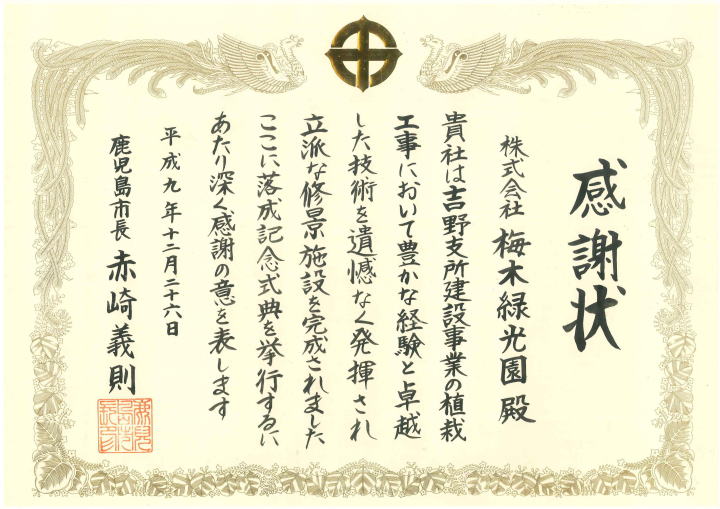 感謝状
株式会社 梅木緑光園殿
貴社は吉野支所建設事業の植栽
工事において豊かな経験と卓越
した技術を遺憾なく発揮され
立派な修景施設を完成されました
ここに落成記念式典を挙行するに
あたり深く感謝の意を表します
平成九年十二月二十六日
鹿児島市長 赤崎義則